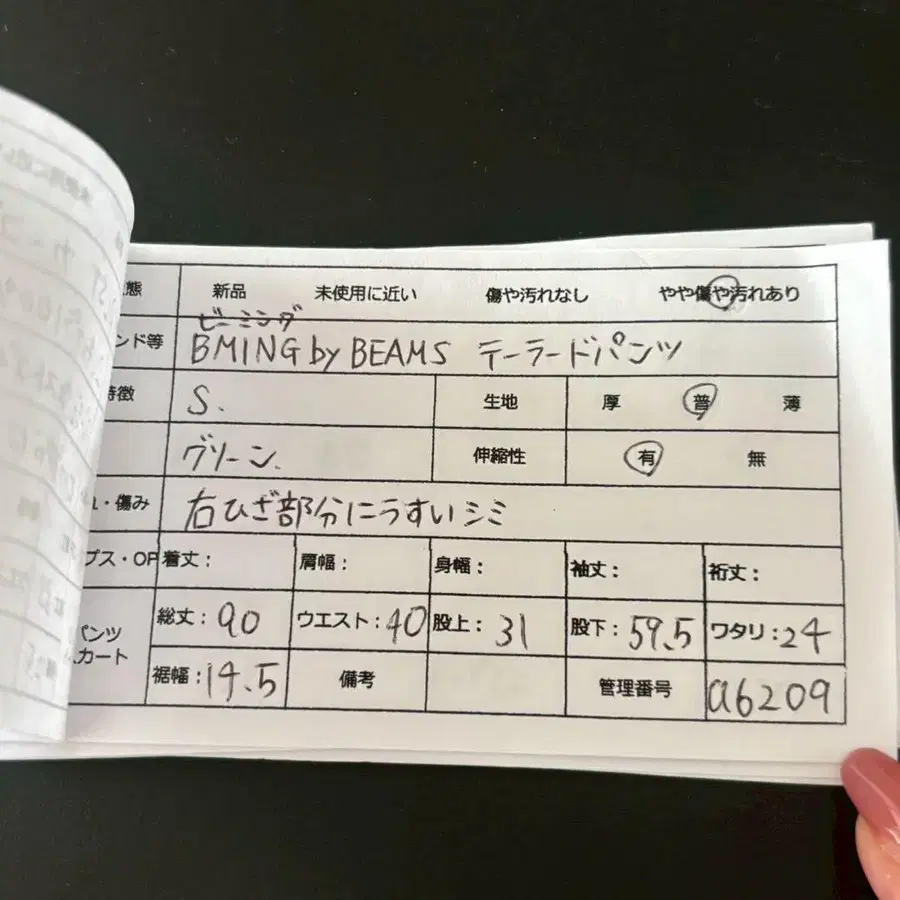 態 新品 未使用に近い 傷や汚れなし やや傷や汚れあり
ビーミング
ンド等 BMING by BEAMS テーラードパンツ
特徴 S. 生地 厚 普 薄
グリーン. 伸縮性 有 無
・傷み 右ひざ部分にうすいシミ
プス・OP 着丈： 肩幅： 身幅： 袖丈： 裄丈：
パンツ
スカート
総丈：90 ウエスト：40 股上：31 股下：59.5 ワタリ：24
裾幅：14.5 備考 管理番号 a6209